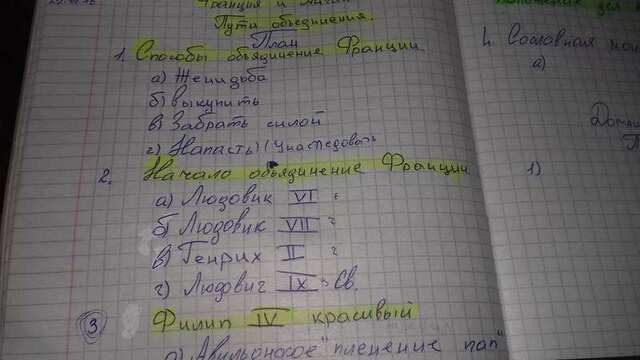 Франция и
Пути объединения.
План
1. Способы объядинение Франции
а) Женидьба
б) Выкупить
в) Забрать силой
г) Напасть) (унаследовать
2. Начало объядинение Франции
а) Людовик VI
б) Людовик VII
в) Генрих II
г) Людовиг IX Св.
3 Филип IV красивый
а) "пленение пап"
Сословная
а)
1)